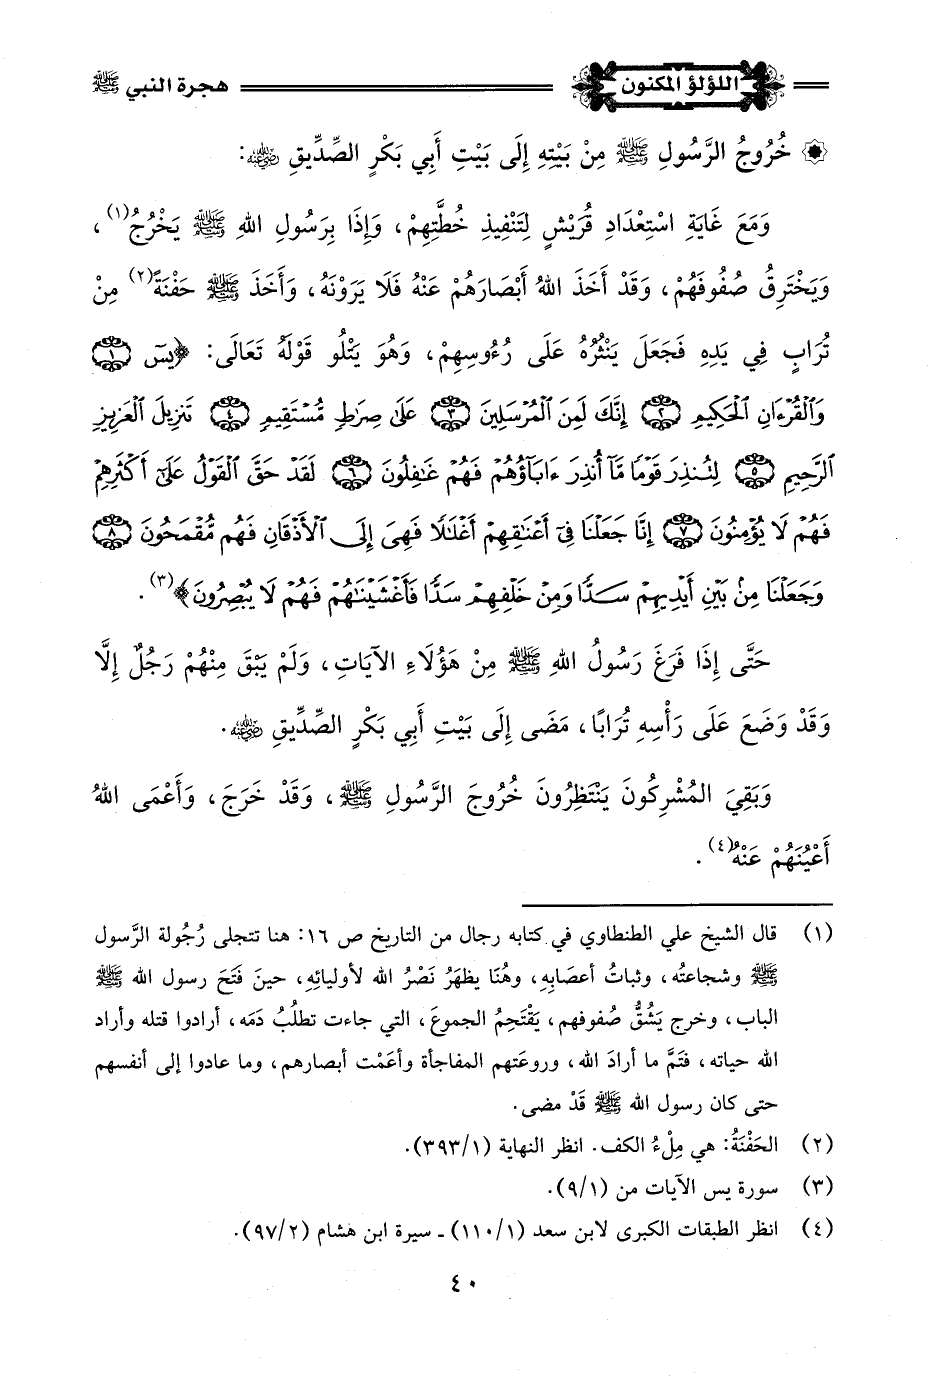 اللؤلؤ المكنون
هجرة النبي ﷺ
خُرُوجُ الرَّسُولِ ﷺ مِنْ بَيْتِهِ إِلَى بَيْتِ أَبِي بَكْرٍ الصِّدِّيقِ رضي الله عنه:
وَمَعَ غَايَةِ اسْتِعْدَادِ قُرَيْشٍ لِتَنْفِيذِ خُطَّتِهِمْ، وَإِذَا بِرَسُولِ اللهِ ﷺ يَخْرُجُ(١)،
وَيَخْتَرِقُ صُفُوفَهُمْ، وَقَدْ أَخَذَ اللهُ أَبْصَارَهُمْ عَنْهُ فَلَا يَرَوْنَهُ، وَأَخَذَ ﷺ حَفْنَةً(٢) مِنْ
تُرَابٍ فِي يَدِهِ فَجَعَلَ يَنْثُرُهُ عَلَى رُءُوسِهِمْ، وَهُوَ يَتْلُو قَوْلَهُ تَعَالَى: ﴿يسٓ ١
وَٱلْقُرْءَانِ ٱلْحَكِيمِ ٢ إِنَّكَ لَمِنَ ٱلْمُرْسَلِينَ ٣ عَلَىٰ صِرَٰطٍ مُّسْتَقِيمٍ ٤ تَنزِيلَ ٱلْعَزِيزِ
ٱلرَّحِيمِ ٥ لِتُنذِرَ قَوْمًا مَّآ أُنذِرَ ءَابَآؤُهُمْ فَهُمْ غَٰفِلُونَ ٦ لَقَدْ حَقَّ ٱلْقَوْلُ عَلَىٰٓ أَكْثَرِهِمْ
فَهُمْ لَا يُؤْمِنُونَ ٧ إِنَّا جَعَلْنَا فِىٓ أَعْنَٰقِهِمْ أَغْلَٰلًا فَهِىَ إِلَى ٱلْأَذْقَانِ فَهُم مُّقْمَحُونَ ٨
وَجَعَلْنَا مِنۢ بَيْنِ أَيْدِيهِمْ سَدًّا وَمِنْ خَلْفِهِمْ سَدًّا فَأَغْشَيْنَٰهُمْ فَهُمْ لَا يُبْصِرُونَ﴾(٣).
حَتَّى إِذَا فَرَغَ رَسُولُ اللهِ ﷺ مِنْ هَؤُلَاءِ الآيَاتِ، وَلَمْ يَبْقَ مِنْهُمْ رَجُلٌ إِلَّا
وَقَدْ وَضَعَ عَلَى رَأْسِهِ تُرَابًا، مَضَى إِلَى بَيْتِ أَبِي بَكْرٍ الصِّدِّيقِ رضي الله عنه.
وَبَقِيَ المُشْرِكُونَ يَنْتَظِرُونَ خُرُوجَ الرَّسُولِ ﷺ، وَقَدْ خَرَجَ، وَأَعْمَى اللهُ
أَعْيُنَهُمْ عَنْهُ(٤).
(١) قال الشيخ علي الطنطاوي في كتابه رجال من التاريخ ص ١٦: هنا تتجلى رُجُولة الرَّسول
ﷺ وشجاعتُه، وثباتُ أعصَابِهِ، وهُنَا يظهَرُ نَصْرُ الله لأوليائِهِ، حينَ فَتَحَ رسول الله ﷺ
الباب، وخرج يَشُقُّ صُفوفهم، يَقْتَحِمُ الجموعَ، التي جاءت تطلُبُ دَمَه، أرادوا قتله وأراد
الله حياته، فتَمَّ ما أرادَ الله، وروعَتهم المفاجأة وأعَمْت أبصارهم، وما عادوا إلى أنفسهم
حتى كان رسول الله ﷺ قَدْ مضى.
(٢) الحَفْنَةُ: هي مِلْءُ الكف. انظر النهاية (٣٩٣/١).
(٣) سورة يس الآيات من (٩/١).
(٤) انظر الطبقات الكبرى لابن سعد (١١٠/١) ـ سيرة ابن هشام (٩٧/٢).
٤٠